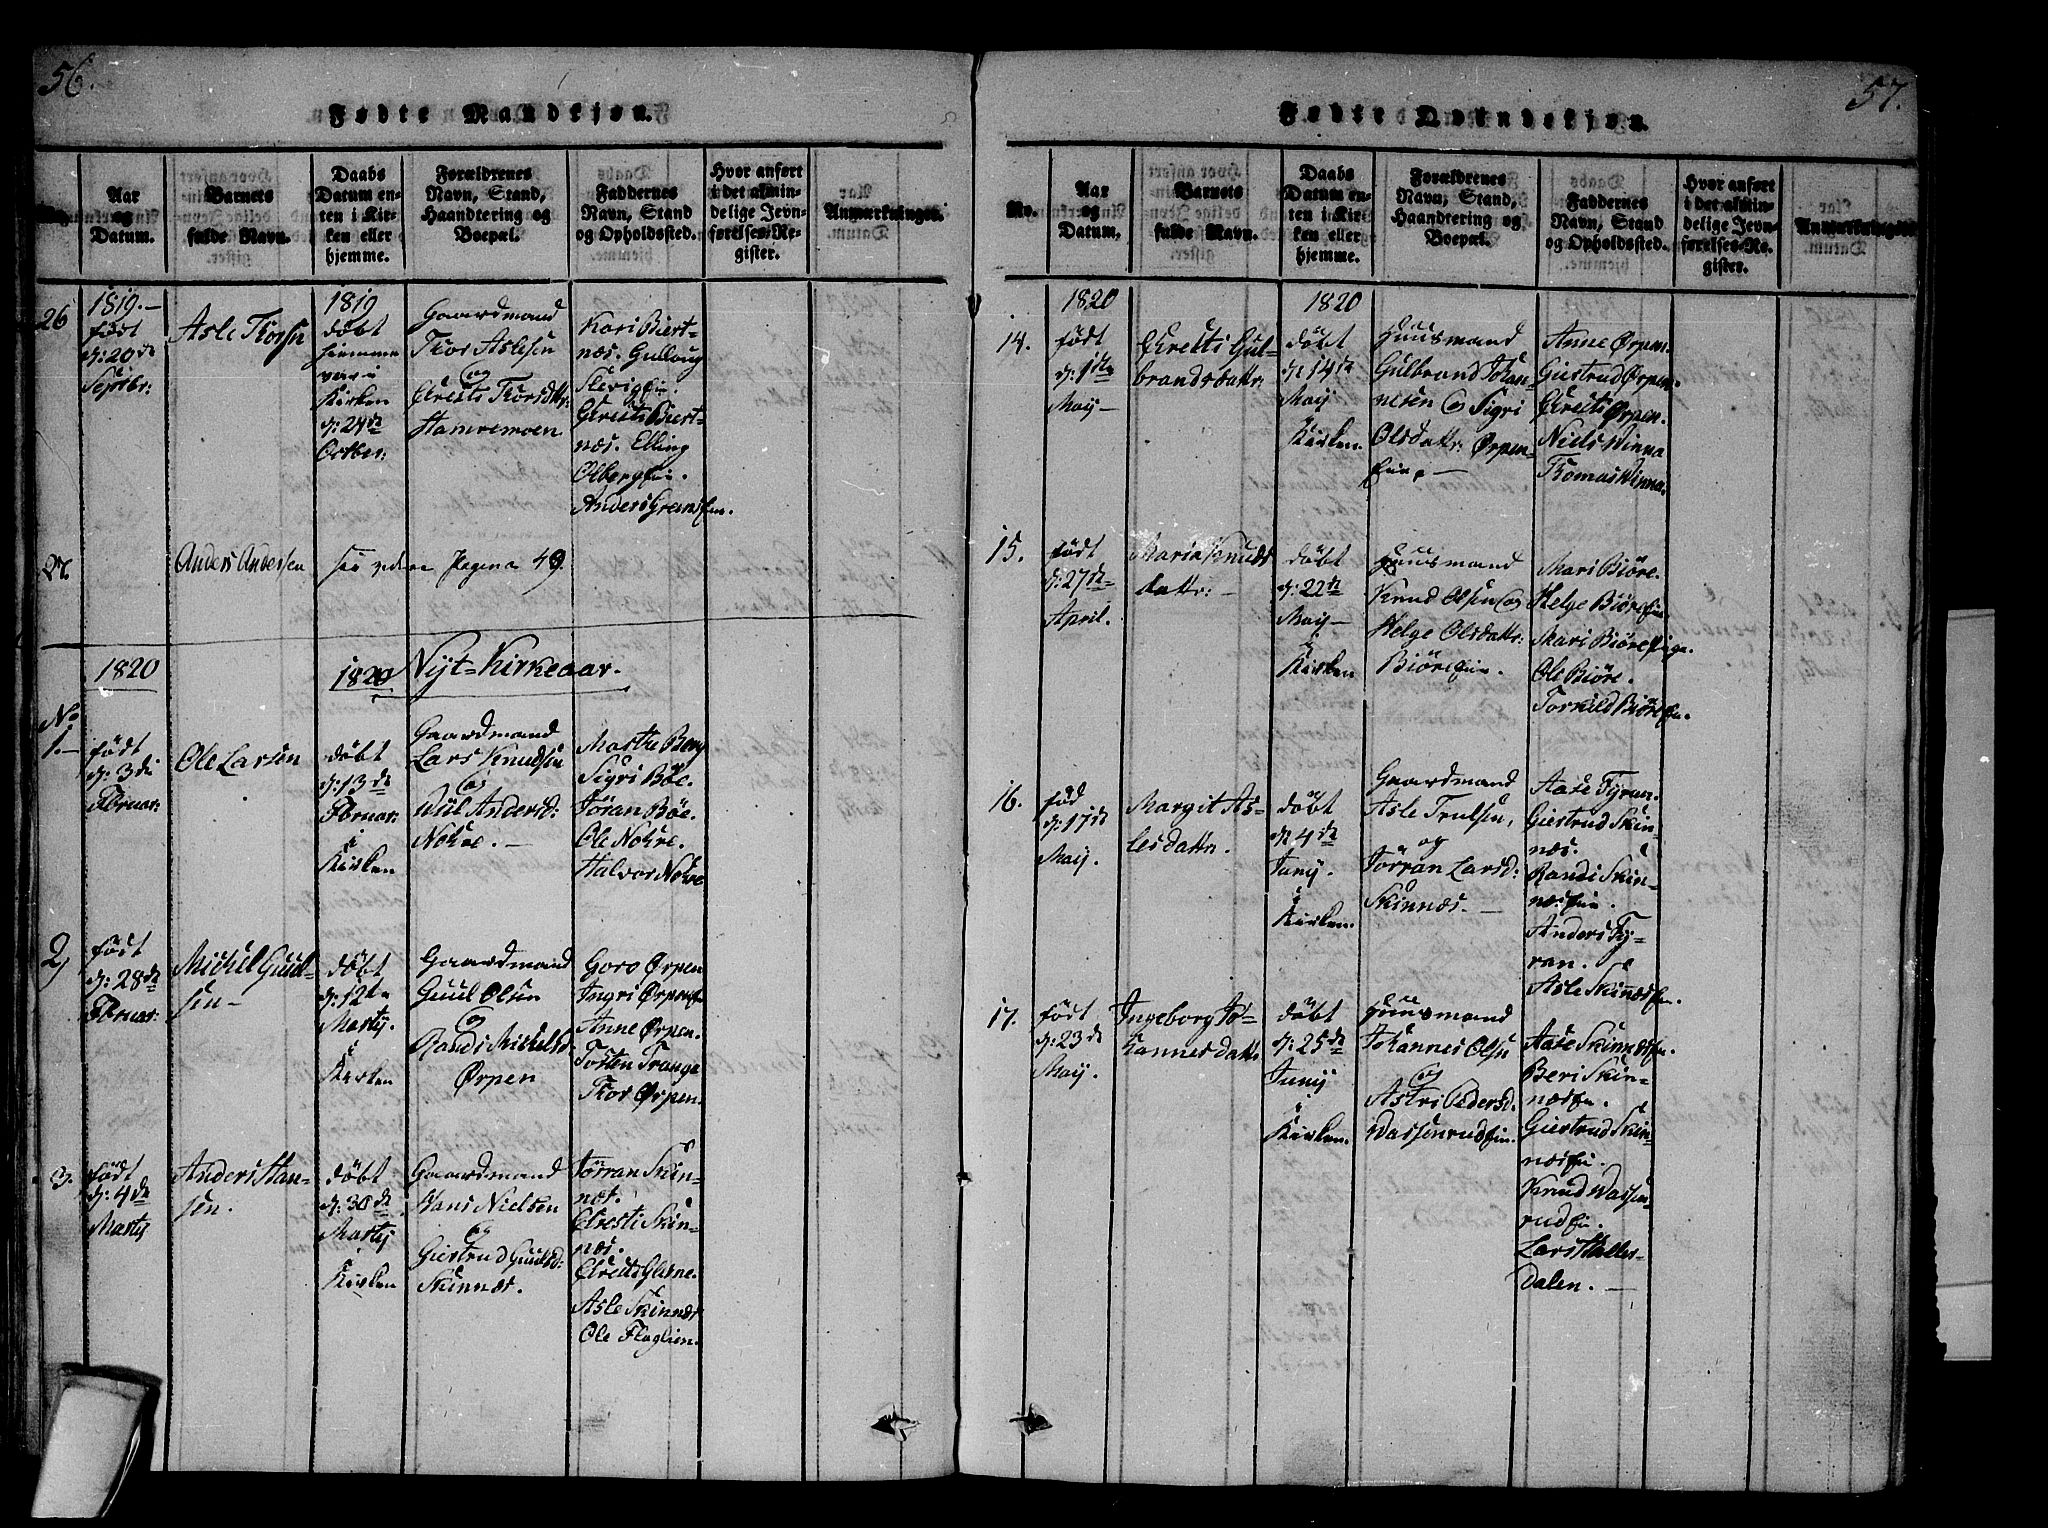 56.
Fødte Mandkjøn.
No.
Aar
og
Datum.
Barnets
fulde Navn.
Daabs
Datum en-
ten i Kir-
ken eller
hjemme.
Forældrenes
Navn, Stand,
Haandtering og
Boepæl.
Faddernes
Navn, Stand
og Opholdssted.
Hvor anført
i det almin-
delige Jevn-
førelses-Re-
gister.
Anmærkninger.
26
1819.—
født
d: 20de
Septbr:
Asle Thorsen
1819
døbt
hiemme
var i
Kirken
d: 24de
Octbr:
Gaardmand
Thor Aslesen
og
Christi Thorsdtr:
Hamremoen
Kari Biert-
næs. Gulloug
Christi Biert-
næs. Elling
Olbergein.
27.
Anders Andersen
see videre Pagina 49.
1820
1820
Nyt-Kirkeaar.
No
1.—
født
d: 3de
Februar:
Ole Larsen
døbt
d: 13de
Februar:
i
Kirken
Gaardmand
Lars Knudsen
og
Andersd:
Nøkre.—
Marthe Berg
Sigri Böe.
Jöran Böe.
Ole Nøkre.
Halvor Nøkre
2,
født
d: 28de
Februar:
Michel Guul-
sen—
døbt
d: 12te
Martij.
i
Kirken
Gaardmand
Guul Olsen
og
Randi Michelsd:
Ørpen
Goro Ørpen
Ingri Ørpen
Anne Ørpen.
Torsten Trange
Thor Ørpen.
3.
født
d: 4de
Martij
Anders Han-
sen.
døbt
d: 30de
Martij
i
Kirken
Gaardmand
Hans Nielsen
og
Giertrud Guulsd:
Skinnæs.
Jörran Skin-
næs.
Christi Skin-
næs.
Christi Glesne.
Asle Skinnæs
Ole Flaglien.
57.
Fødte Qvindekjøn.
No.
Aar
og
Datum.
Barnets
fulde Navn.
Daabs
Datum en-
ten i Kir-
ken eller
hjemme.
Forældrenes
Navn, Stand,
Haandtering og
Boepæl.
Faddernes
Navn, Stand
og Opholdssted.
Hvor anført
i det almin-
delige Jevn-
førelses-Re-
gister.
Anmærkninger.
14.
1820
født
d: 1ste
Maij—
Christi Gul-
brandsdattr:
1820
døbt
d: 14de
Maij
i
Kirken.
Huusmand
Gulbrand Johan-
nesen og Sigri
Olsdattr: Ørpen-
eie,—
Anne Ørpen.
Giertrud Ørpen.
Christi Ørpen.
Niels Winna
Thomas Winna.
15.
født
d: 27de
April.
Maria Knuds
dattr:—
døbt
d: 22de
Maij—
i
Kirken
Huusmand
Knud Olsen og
Helge Olsdattr:
Biöreeie.
Mari Biöre.
Helge Biöreeie
Mari Biöre Pige.
Ole Biöre.
Torkild Biöreeie.
16.
fød
d: 17de
Maij.
Margit As-
lesdattr.
døbt
d: 4de
Junij.
i
Kirken.
Gaardmand
Asle Trulsen,
og
Jörran Larsd:
Skinnæs.—
Aase Fyran.
Giertrud Skin-
næs.
Randi Skin-
næseie.
Anders Fy-
ran.
Asle Skinnæseie.
17.
født
d: 23de
Maij.
Ingeborg Jo-
hannesdattr
døbt
d: 25de
Junij
i
Kirken.
Huusmand
Johannes Olsen
og
Astri Pedersd.
Wassenrudeie.
Aase Skinnæseie.
Beri Skin-
næseie.
Giertrud Skin-
næseie.
Knud Wassen-
rudeie.
Lars Haller-
dalen.—